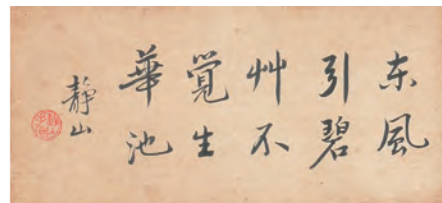 东風
引碧
艸不
覺生
華池
静山